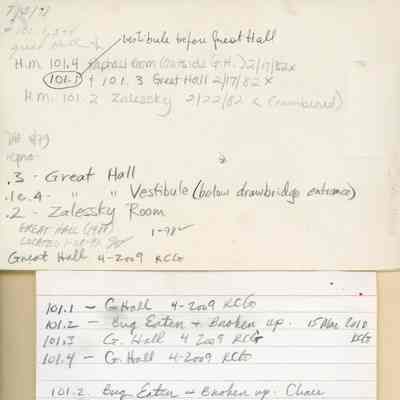 great hall
vestibule before Great Hall
H.M. 101.4 Room (outside G.H.) 2/17/82 x
101.1 + 101.3 Great Hall 2/17/82 x
H.M. 101.2 Zalessky 2/22/82 x (combined)
.3 - Great Hall
.1 & .4 - " " Vestibule (below drawbridge entrance)
.2 - Zalessky Room
GREAT HALL (1988) 1-98 ✓
LOCATED
Great Hall 4-2009 RCG
101.1 - G. Hall 4-2009 RCG
101.2 - Bug Eaten + Broken up. 15 Mar 2010
101.3 G. Hall 4 2009 RCG RCG
101.4 - G. Hall 4-2009 RCG
101.2. Bug Eaten - Broken up. Chair